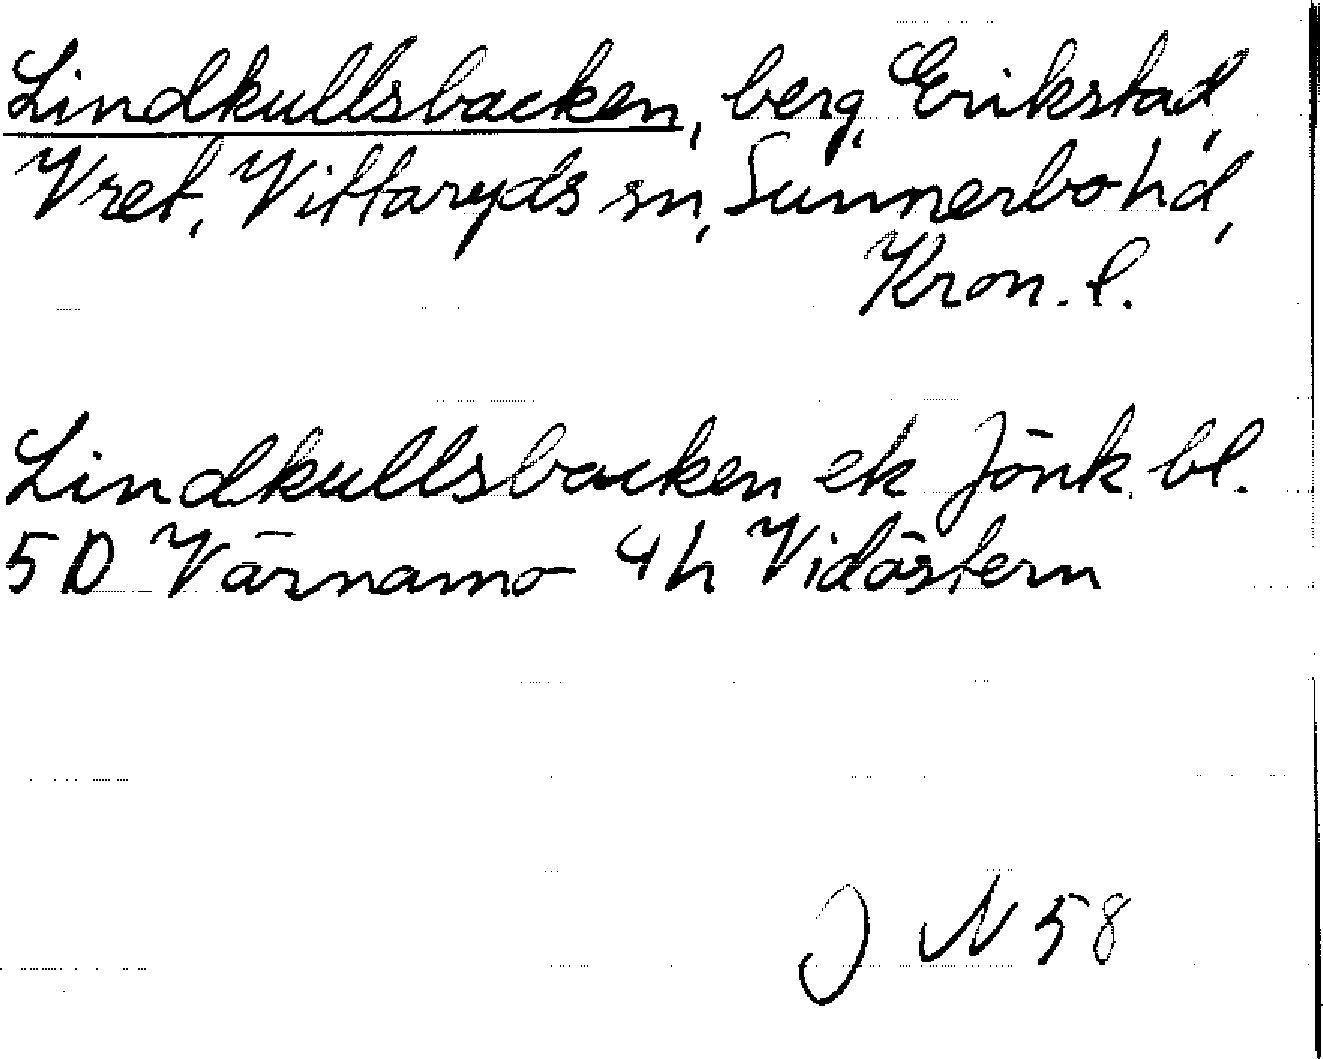 Lindkullsbacken, berg, Erikstad,
Vret, Vittaryds sn, Sunnerbo hd,
Kron. l.
Lindkullsbacken ek Jönk. bl.
5D Värnamo 4h Vidöstern
J N 58